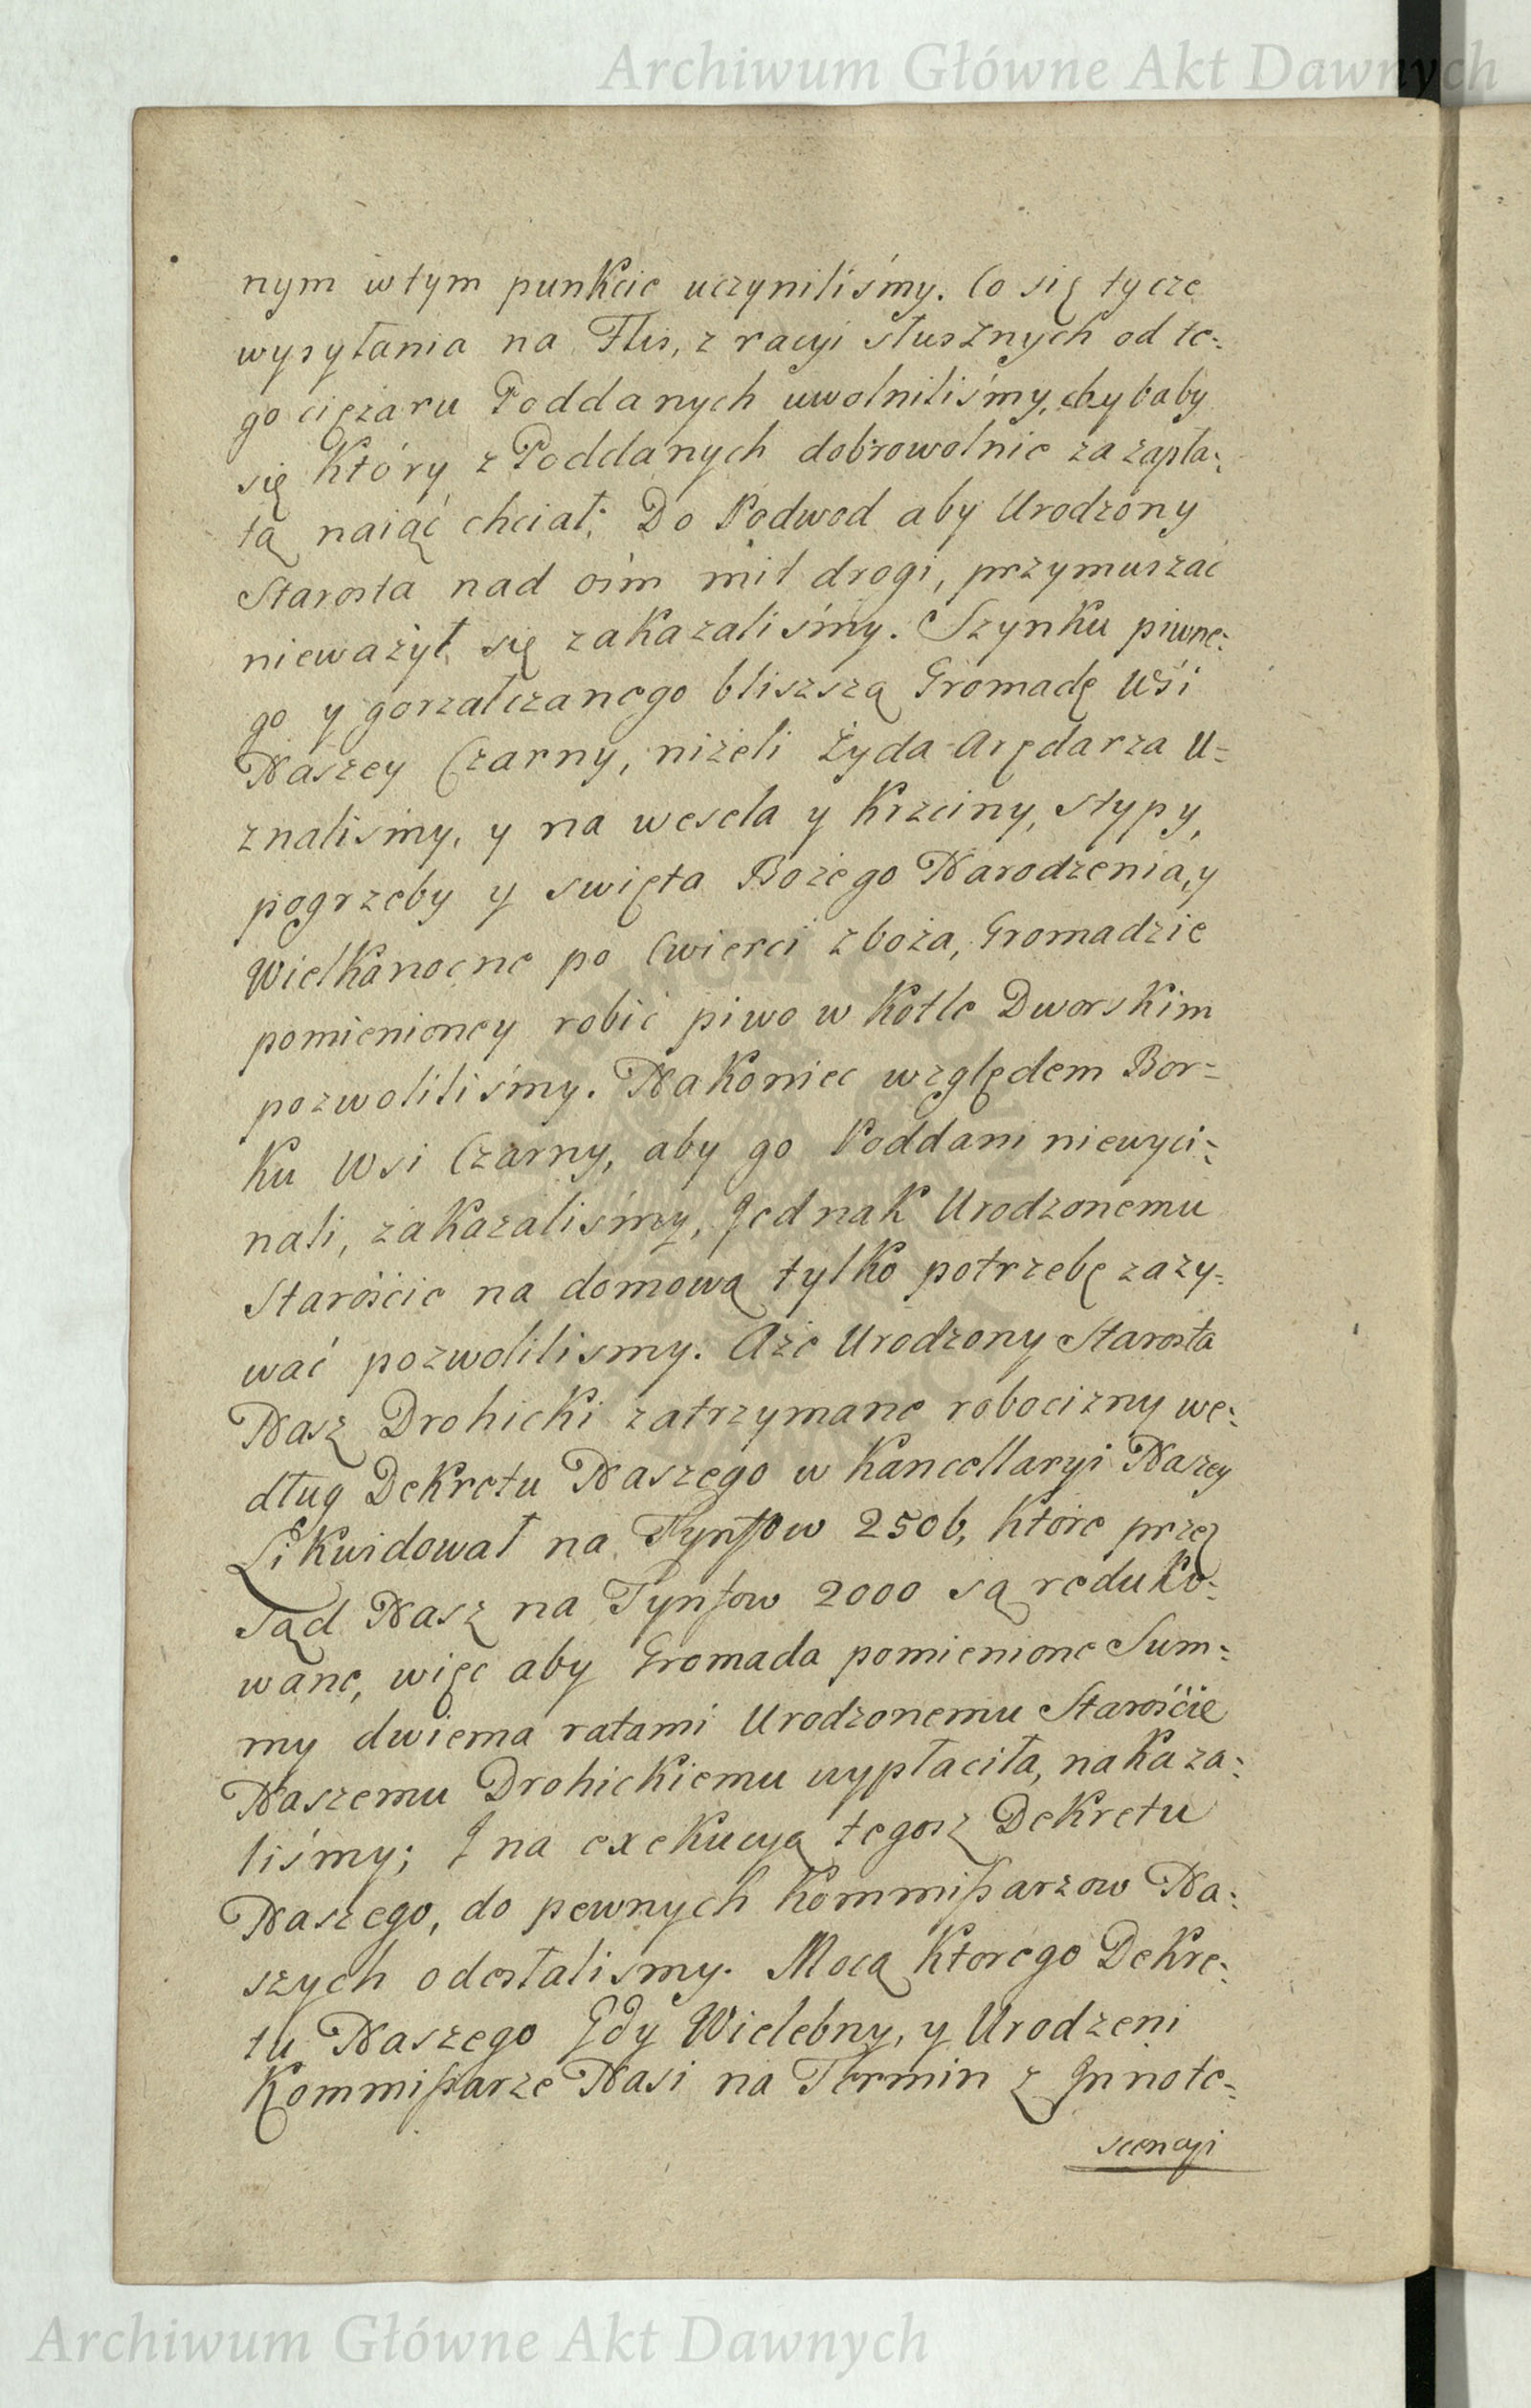 Archiwum Główne Akt Dawnych
nym w tym punkcie uczyniliśmy. Co się tycze
wysyłania na Flis, z racyi słusznych od te-
go ciężaru Poddanych uwolniliśmy, chybaby
się Który z Poddanych dobrowolnie za zapła-
tą naiąć chciał; Do Podwod aby Urodzony
Starosta nad ośm mil drogi, przymuszać
nieważył się zakazaliśmy. Szynku piwne-
go y gorzałczanego bliszszą Gromadę Wśi
Naszey Czarny, niżeli Żyda Arędarza u-
znaliśmy, y na wesela y Krzciny, Stypy,
pogrzeby y swięta Bożego Narodzenia, y
Wielkanocne po Cwierci zboża, Gromadzie
pomienioney robić piwo w Kotle Dworskim
pozwoliliśmy. Nakoniec względem Bor-
ku Wsi Czarny, aby go Poddani niewyci-
nali, zakazaliśmy, Jednak Urodzonemu
Staroście na domową tylko potrzebę zaży-
wać pozwolilismy. Aże Urodzony Starosta
Nasz Drohicki zatrzymane robocizny we-
dług Dekretu Naszego w Kancellaryi Naszey
Likwidował na Tynfow 2506, Które przez
Sąd Nasz na Tynfow 2000 są reduko-
wane, więc aby Gromada pomienione Sum-
my dwiema ratami Urodzonemu Starościie
Naszemu Drohickiemu wypłaciła, nakaza-
liśmy; I na exekucyą tegosz Dekretu
Naszego, do pewnych Kommißarzow Na-
szych odesłalismy. Mocą Ktorego Dekre-
tu Naszego Gdy Wielebny, y Urodzeni
Kommißarze Nasi na Termin z Innote-
scencyi
Archiwum Główne Akt Dawnych